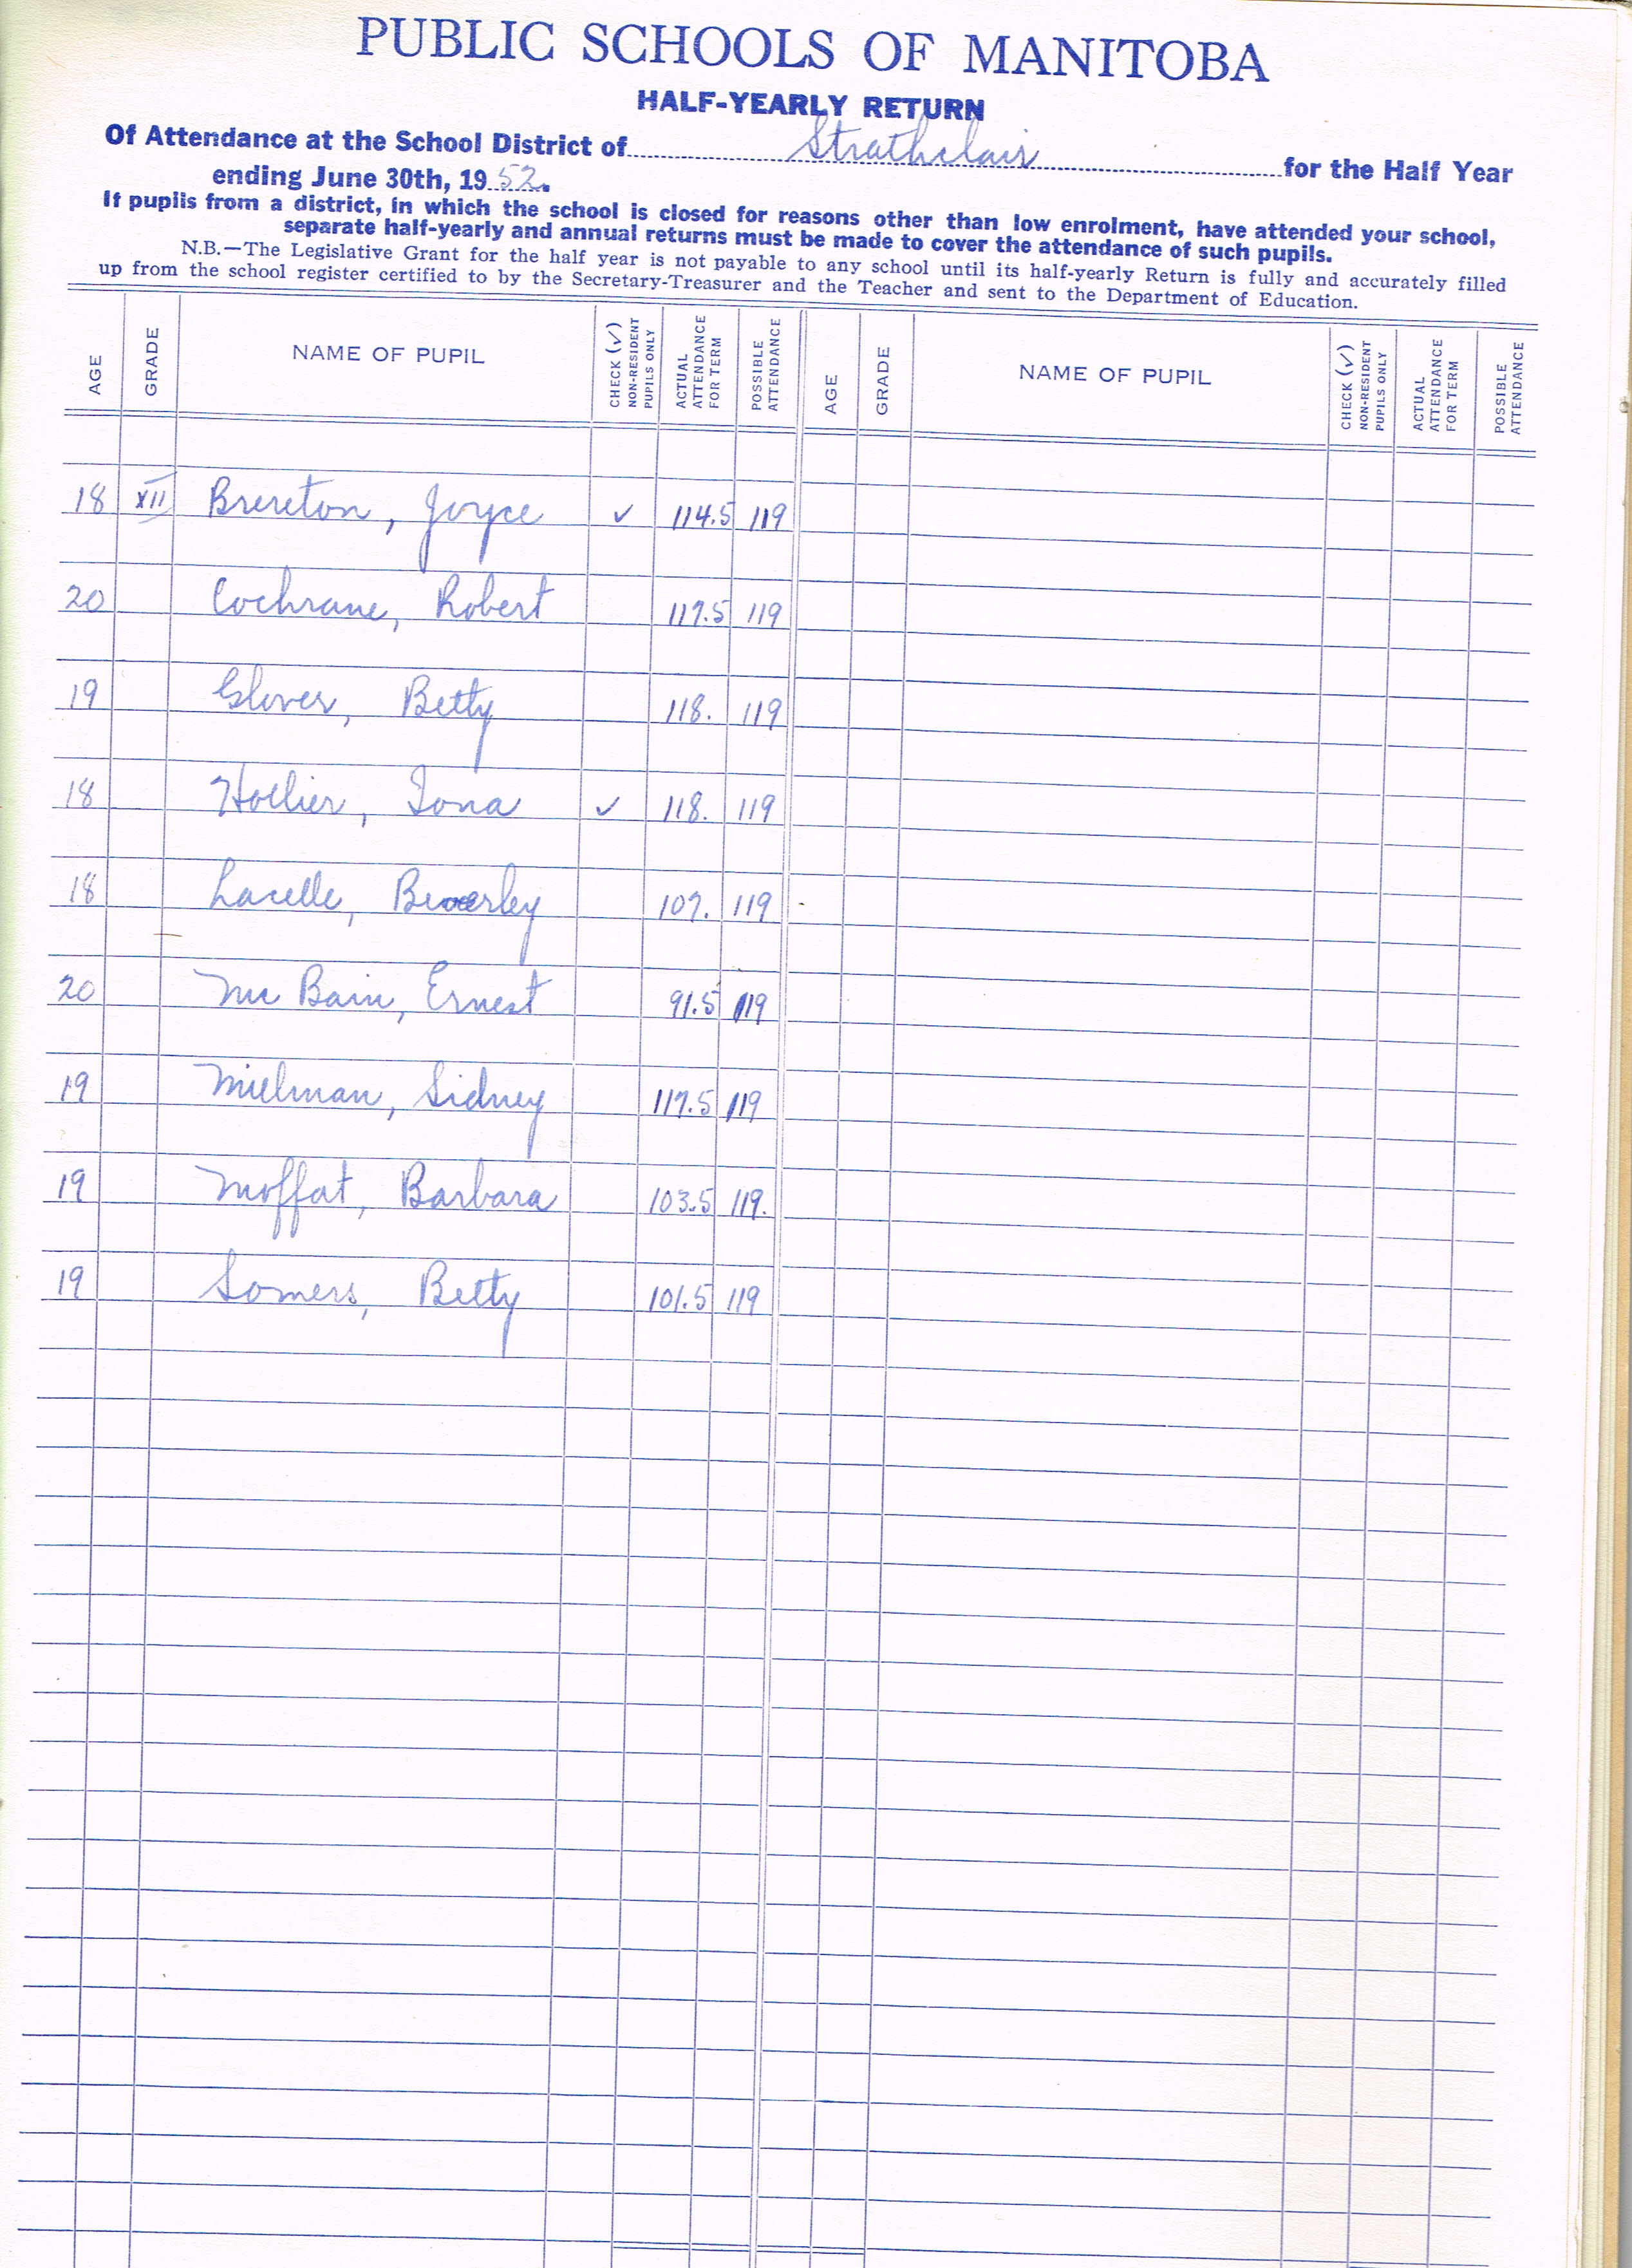 PUBLIC SCHOOLS OF MANITOBA
HALF-YEARLY RETURN
Of Attendance at the School District of Strathclair for the Half Year
ending June 30th, 1952.
If pupils from a district, in which the school is closed for reasons other than low enrolment, have attended your school,
separate half-yearly and annual returns must be made to cover the attendance of such pupils.
N.B.—The Legislative Grant for the half year is not payable to any school until its half-yearly Return is fully and accurately filled
up from the school register certified to by the Secretary-Treasurer and the Teacher and sent to the Department of Education.
AGE GRADE NAME OF PUPIL CHECK (√) NON-RESIDENT PUPILS ONLY ACTUAL ATTENDANCE FOR TERM POSSIBLE ATTENDANCE AGE GRADE NAME OF PUPIL CHECK (√) NON-RESIDENT PUPILS ONLY ACTUAL ATTENDANCE FOR TERM POSSIBLE ATTENDANCE
18 XII Brereton, Joyce ✓ 114.5 119
20 Cochrane, Robert 117.5 119
19 Glover, Betty 118. 119
18 Hollier, Iona ✓ 118. 119
18 Lacelle, Beverley 107. 119
20 Mc Bain, Ernest 91.5 119
19 Sidney 117.5 119
19 Moffat, Barbara 103.5 119.
19 Somers, Betty 101.5 119